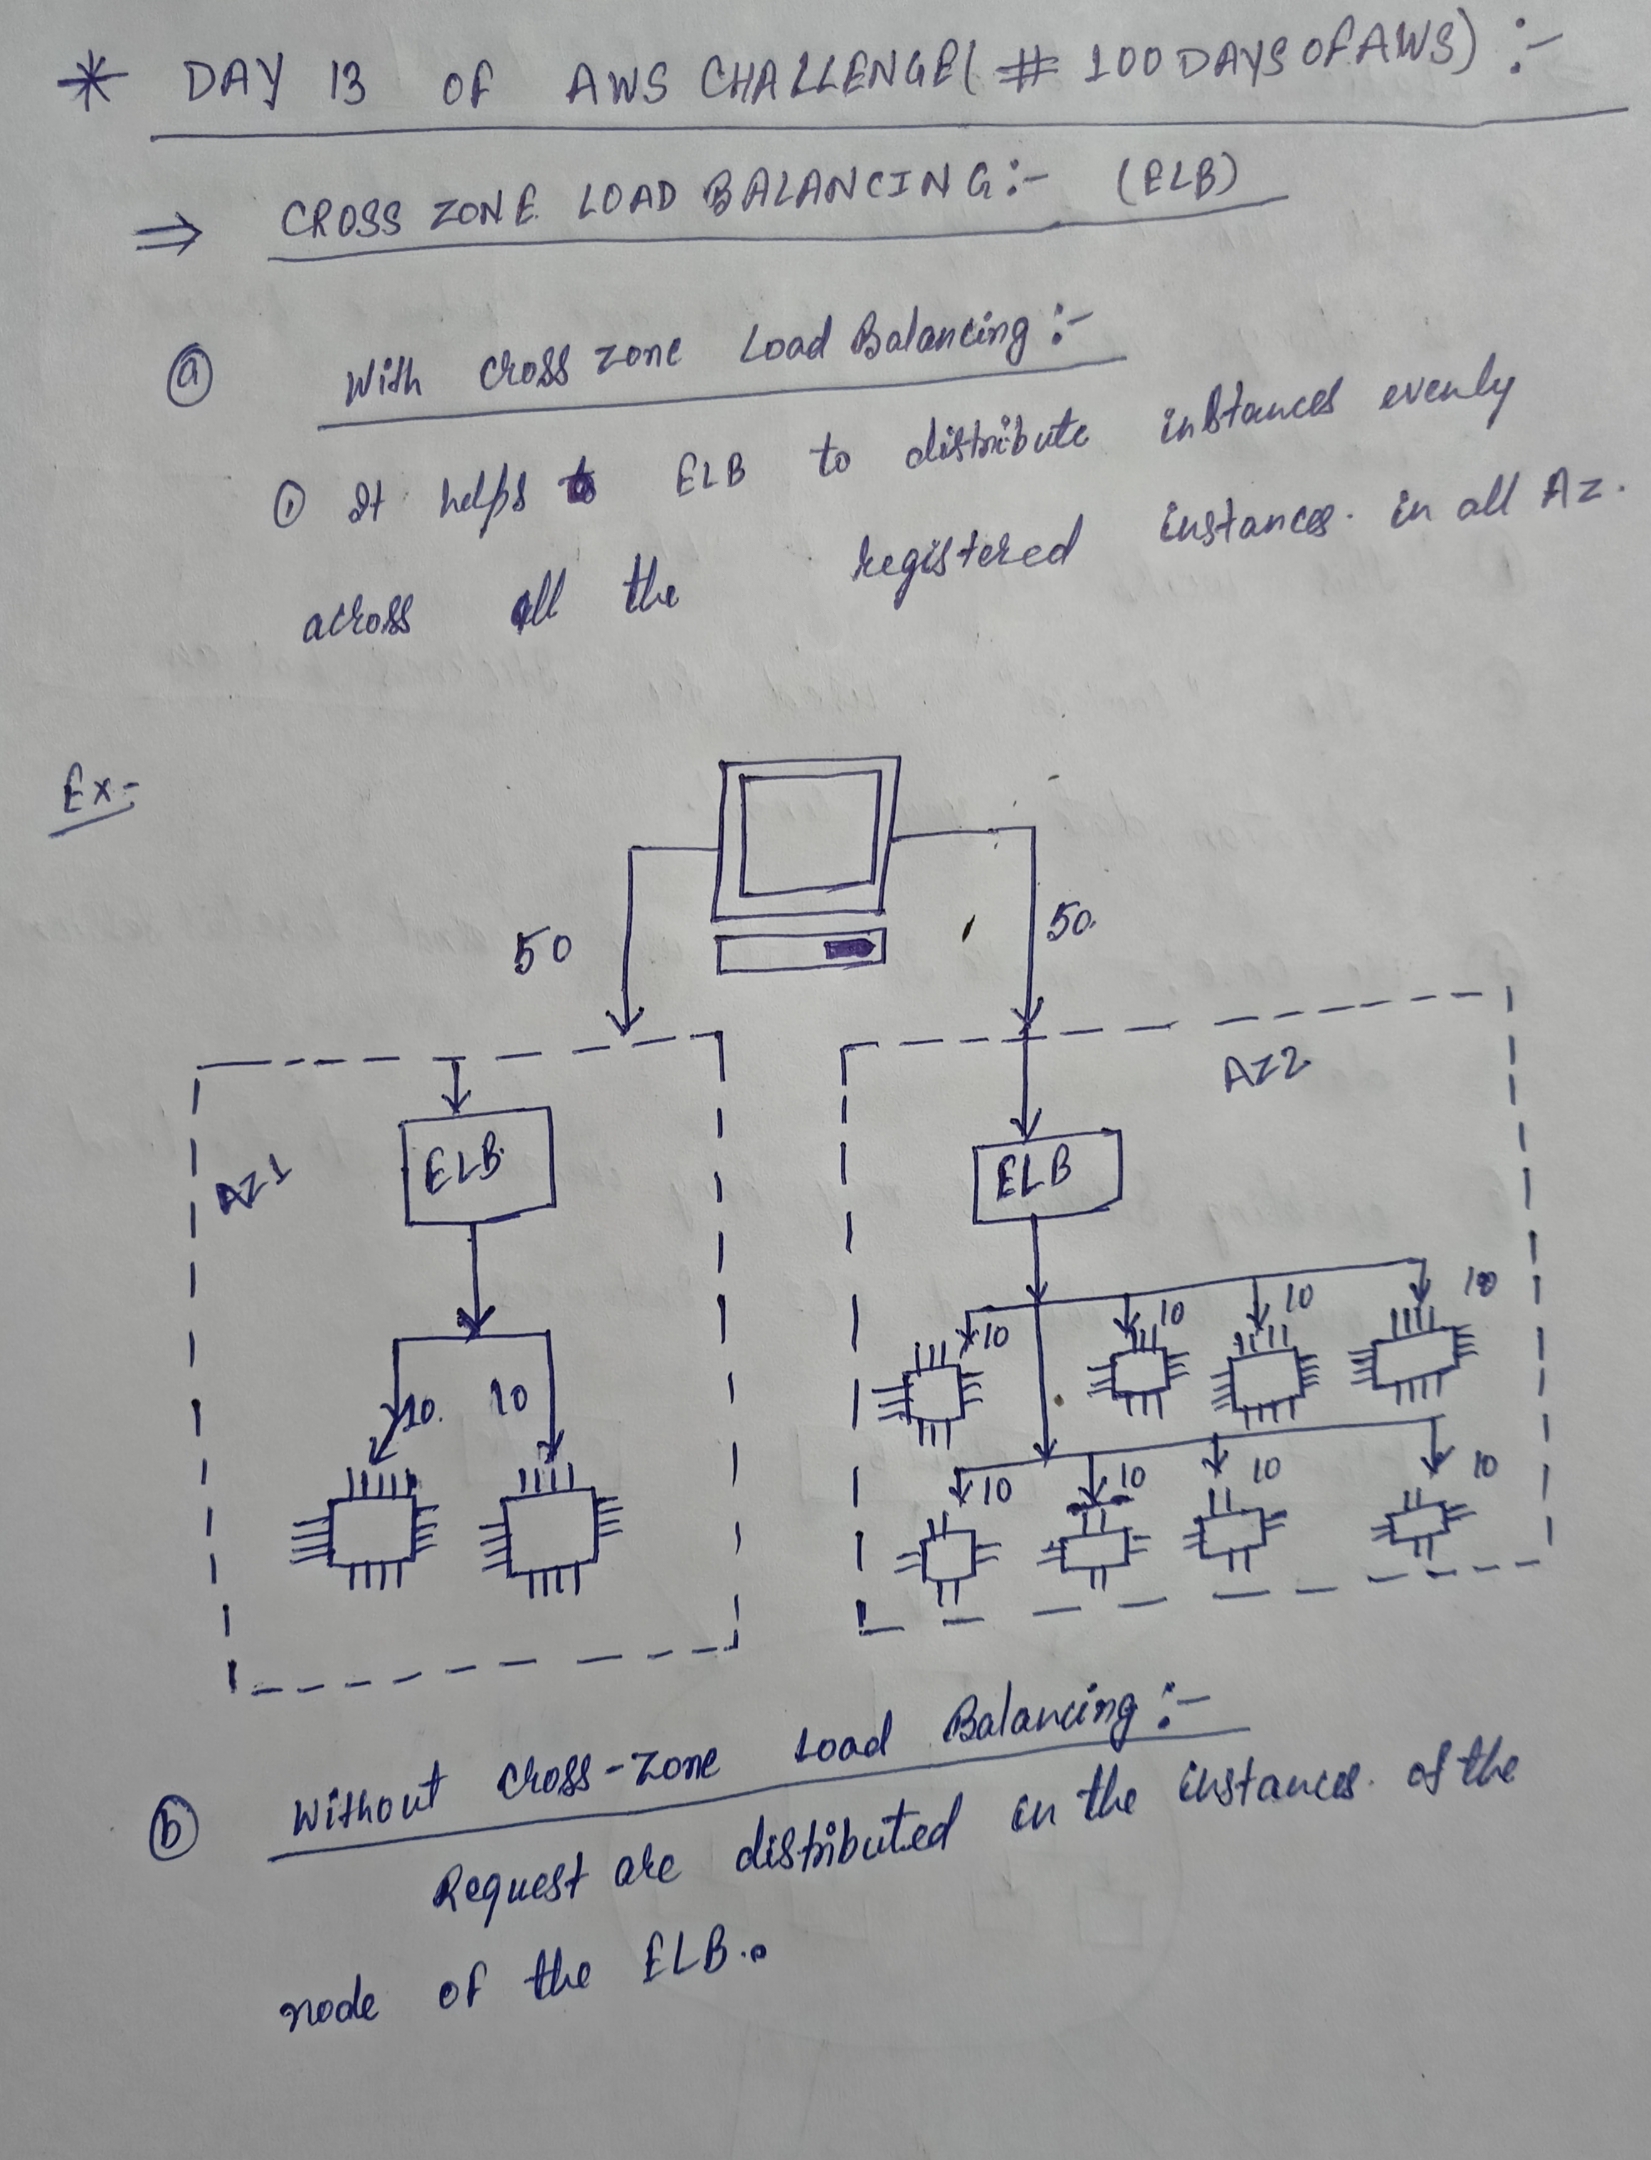 * DAY 13 OF AWS CHALLENGE( # 100DAYSOFAWS) :-
⇒ CROSS ZONE LOAD BALANCING:- (ELB)
ⓐ With cross zone Load Balancing :-
① It helps ELB to distribute instances evenly
across all the registered instances. in all AZ.
Ex-
50 50.
AZ1 AZ2
ELB. ELB
10. 10
10 10 10 10
10 10 10 10
ⓑ Without cross-zone Load Balancing :-
Request are distributed in the instances. of the
node of the ELB.